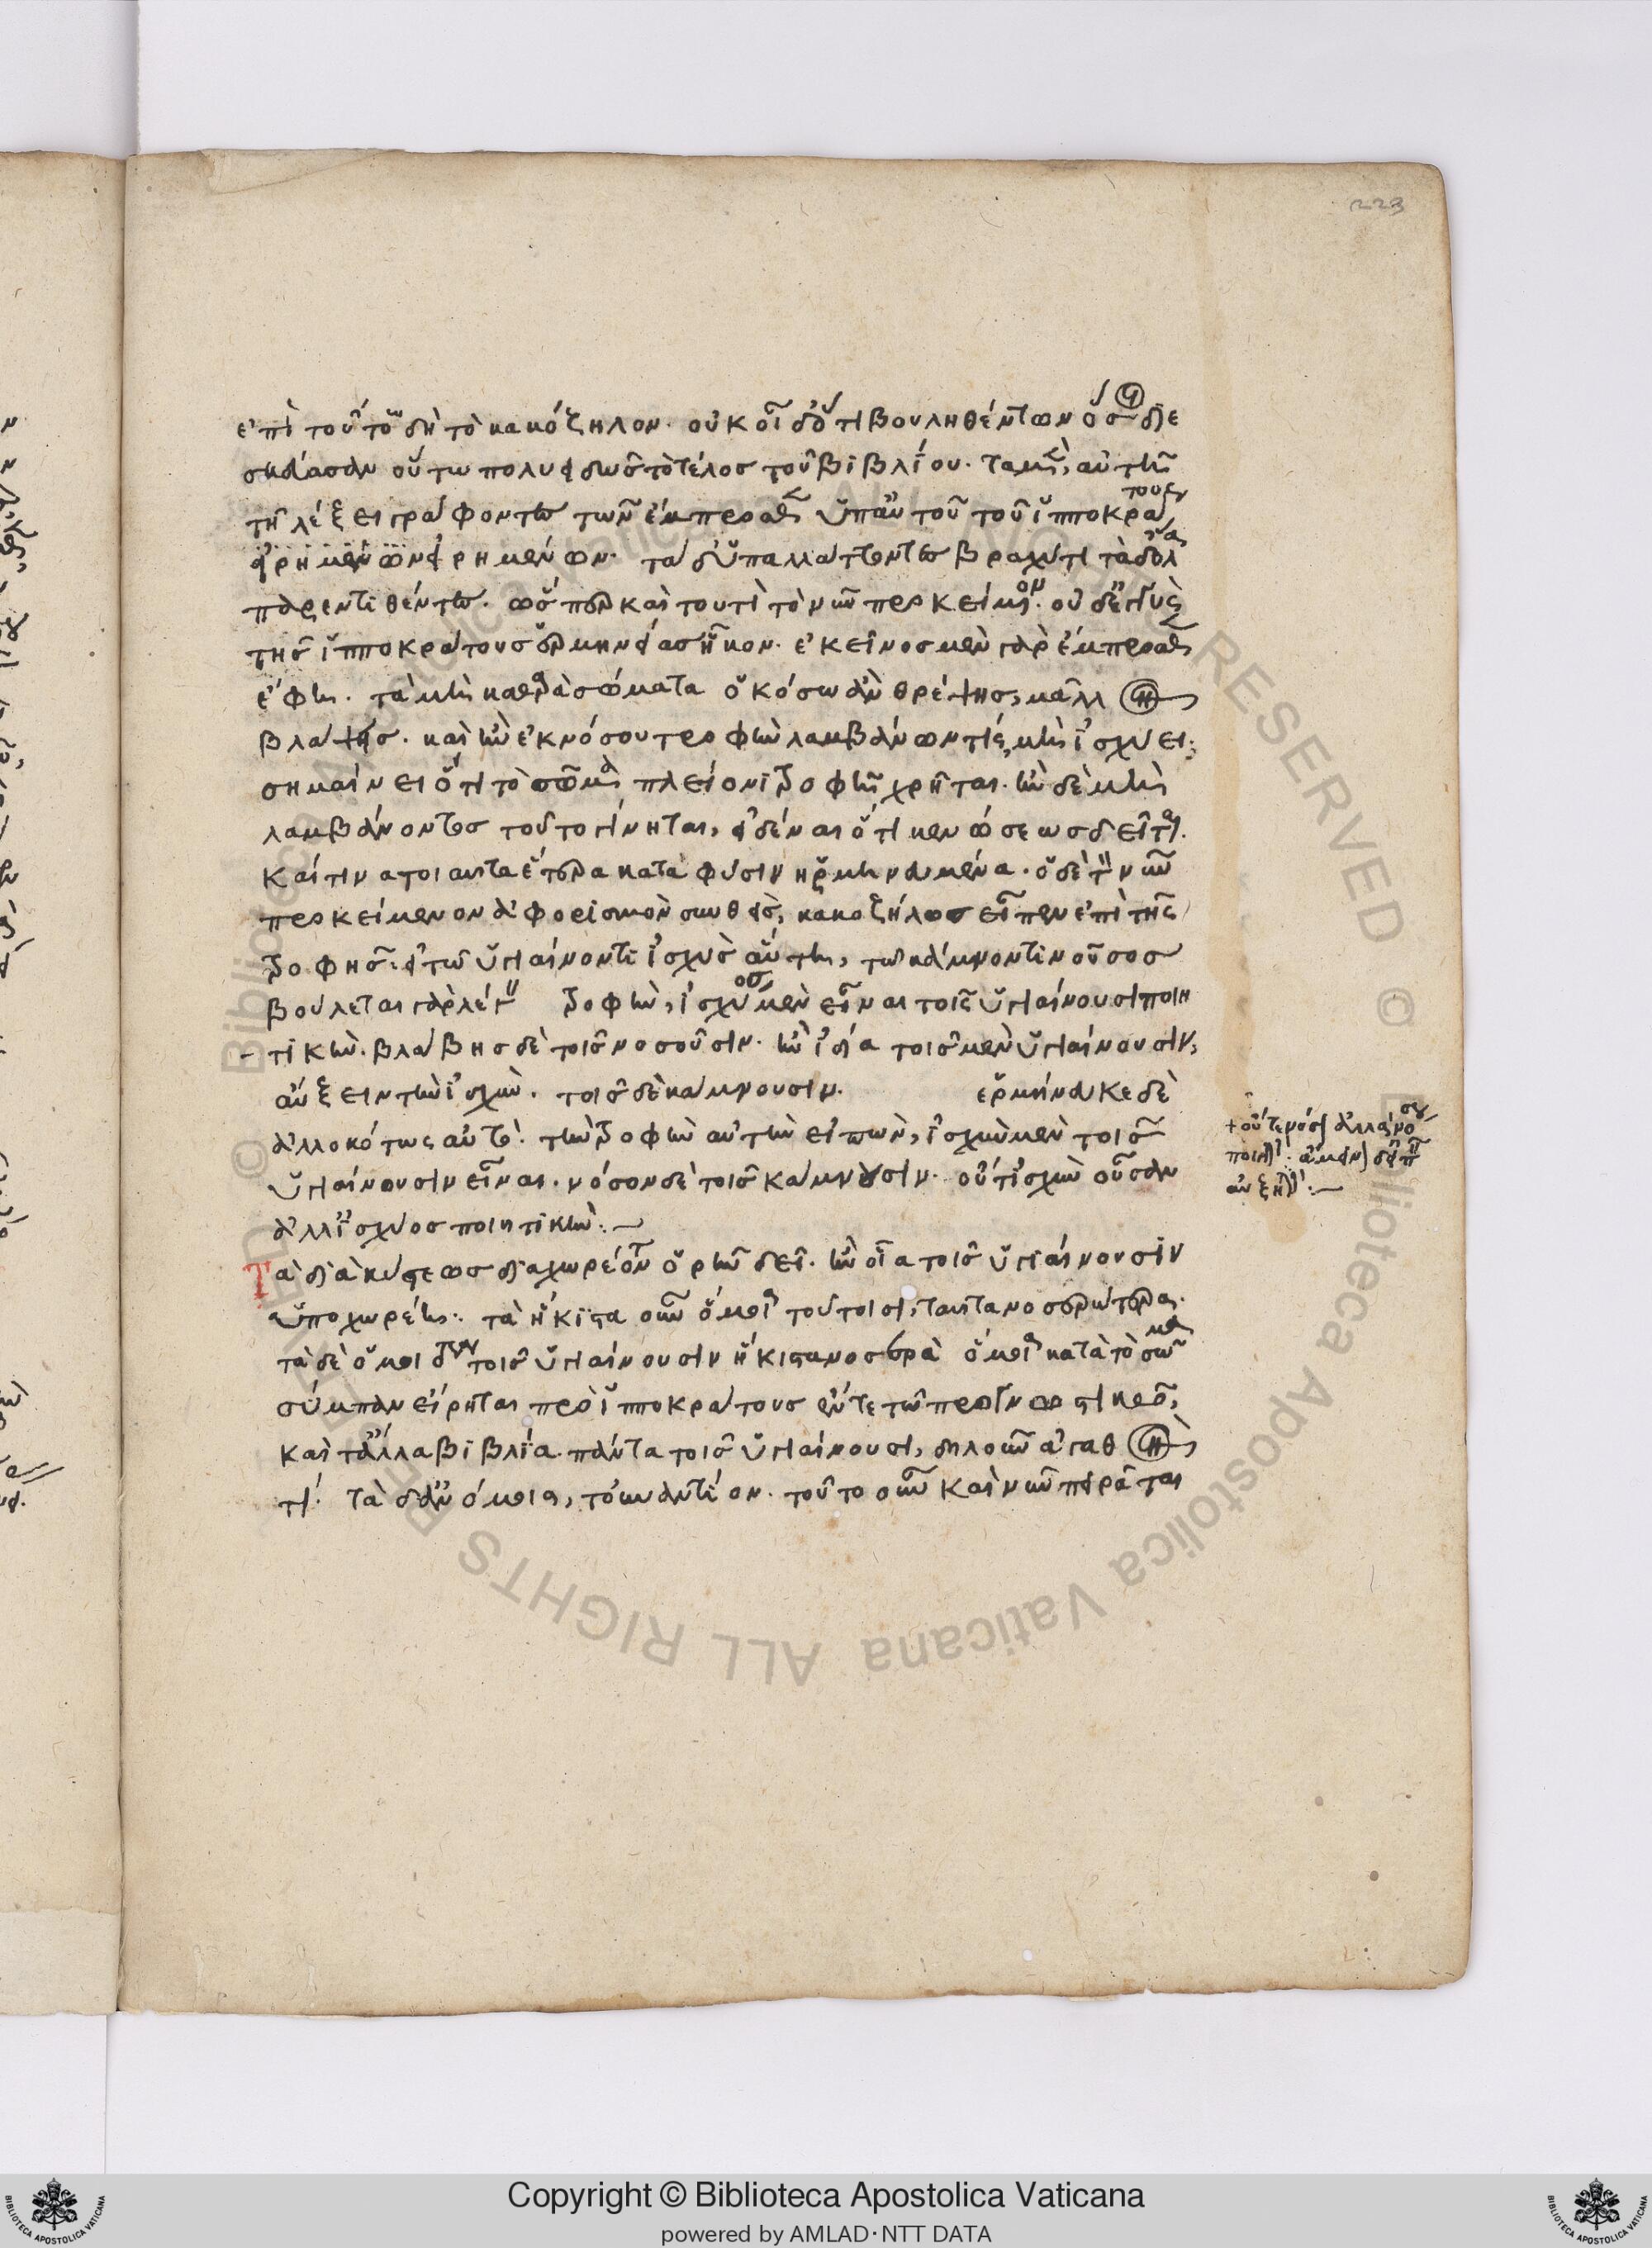 223
ἐπὶ τοῦτο δὴ τὸ κακόζηλον. οὐκ οἶδ' ὅ τι βουληθέντων ὅσοι διε
σκεύασαν οὕτω πολυειδῶς τὸ τέλος τοῦ βιβλίου. τὰ μὲν αὐτῇ
τῇ λέξει γράφοντες τῶν ἔμπροσθεν ὑπ' αὐτοῦ τοῦ ἱπποκράτους
εἰρημένων εἰρημένων. τὰ δ' ὑπαλλάττοντες βραχύ τι τὰ δ' ὅλα
παρεντιθέντες. ὥσπερ καὶ τουτὶ τὸ νῦν προκείμενον. οὐδὲν
τῆς ἱπποκράτους ἑρμηνείας ἧκον. ἐκεῖνος μὲν γὰρ ἔμπροσθεν
ἔφη. τὰ μὴ καθαρὰ σώματα ὁκόσω ἂν θρέψης, μᾶλλον
βλάψης. καὶ ἢν ἐκ νόσου τροφὴν λαμβάνων τίς, μὴ ἰσχύει·
σημαίνει ὅτι τὸ σῶμα πλείονι τροφῆ χρῆται. ἢν δὲ μὴ
λαμβάνοντος τοῦτο γίνηται, εἰδέναι ὅτι κενώσεως δεῖται.
Καί τινα τοιαῦτα ἕτερα κατὰ φύσιν ἡρμηνευμένα. ὁ δὲ τὸν νῦν
προκείμενον ἀφορισμὸν συνθεὶς, κακοζήλως εἶπεν ἐπὶ τῆς
τροφῆς. εἰ τῶ ὑγιαίνοντι ἰσχὺς αὕτη, τῶ κάμνοντι νοῦσος
βούλεται γὰρ λέγειν τροφὴν, ἰσχύος μὲν εἶναι τοῖς ὑγιαίνουσι ποιη
τικὴν. βλάβης δὲ τοῖς νοσοῦσιν. ἢν ἰδία τοῖς μὲν ὑγιαίνουσιν,
αὔξειν τὴν ἰσχὺν. τοῖς δὲ κάμνουσιν. ἑρμήνευκε δὲ
ἀλλοκότως αὐτὸ. τὴν τροφὴν αὐτὴν εἰπὼν, ἰσχὺν μὲν τοῖς
ὑγιαίνουσιν εἶναι. νόσον δὲ τοῖς κάμνουσιν. οὔτ' ἰσχὺν οὖσαν
ἀλλ' ἰσχύος ποιητικὴν:
Τὰ διὰ κύστεως διαχωρέοντα ὁρῆν δεῖ. ἢν οἷα τοῖς ὑγιαίνουσιν
ὑποχωρέη. τὰ ἥκιστα οὖν ὅμοια τούτοισι, ταῦτα νοσερώτερα.
τὰ δὲ ὅμοια τοῖς ὑγιαίνουσιν ἥκιστα νοσερὰ ὅμοια κατὰ τὸ σῶμα
σύμπαν εἴρηται πρὸς ἱπποκράτους ἔν τε τῶ προγνωστικῶ,
καὶ τἄλλα βιβλία. πάντα τοῖς ὑγιαίνουσι, δηλοῦν ἀγαθὸν
τί. τὰ δ' ἀνόμοια, τὸ ἐναντίον. τοῦτο οὖν καὶ νῦν πειρᾶται
+ οὔτε νόσον ἀλλὰ νόσου
ποιητικὴν
αὐξητικὴν: